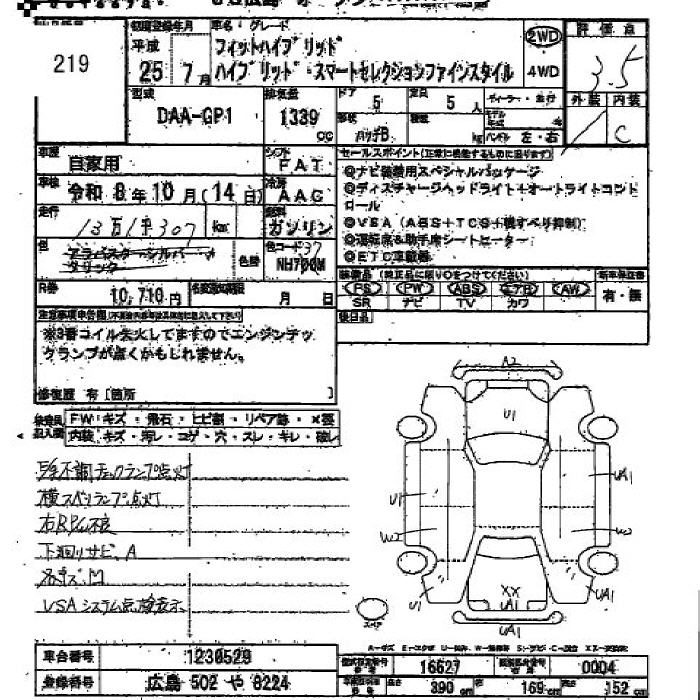 219
年月
車名・グレード
フィットハイブリッド
ハイブリッド・スマートセレクションファインスタイル
平成
25年 7月
2WD
4WD
評価点
3.5
外装 内装
C
型式
DAA-GP1
排気量
1339
cc
ドア
5
定員
5人
形状
ハッチB
kg
ハンドル 左・右
車歴
自家用
シフト
FAT
車検
令和 8年10月(14日)
冷房
AAC
走行
13万1千307 km
燃料
ガソリン
色
アラバスターシルバーメタリック
色替
色コード
NH700M
セールスポイント(正常に機能するものに限ります)
◎ナビ装着用スペシャルパッケージ
◎ディスチャージヘッドライト+オートライトコントロール
◎VSA(ABS+TCS+横すべり抑制)
◎運転席&助手席シートヒーター
◎ETC車載器
(純正品に限り○をつけてください)
新車保証書
PS PW ABS エアB AW
SR ナビ TV カワ
有・無
後日品
R券
10,710円
名変期限
月 日
注意事項申告欄
※3番コイル失火してますのでエンジンチェックランプが点くかもしれません。
修復歴 有[箇所 ]
検査員記入欄
FW:キズ・飛石・ヒビ割・リペア跡・X要
内装:キズ・汚レ・コゲ・穴・スレ・キレ・破レ
不調 チェックランプ点灯
横スベリランプ点灯
下廻リサビ、A
VSAシステム点検表示
A2
U1
UA1
U1
W2
W2
XX
UA1
U1
UA1
UA1
スペア
車台番号
1230529
登録番号
広島 502 や 8224
型式指定番号
16627
類別区分番号
0004
長さ 390 cm
幅 169 cm
高さ 152 cm